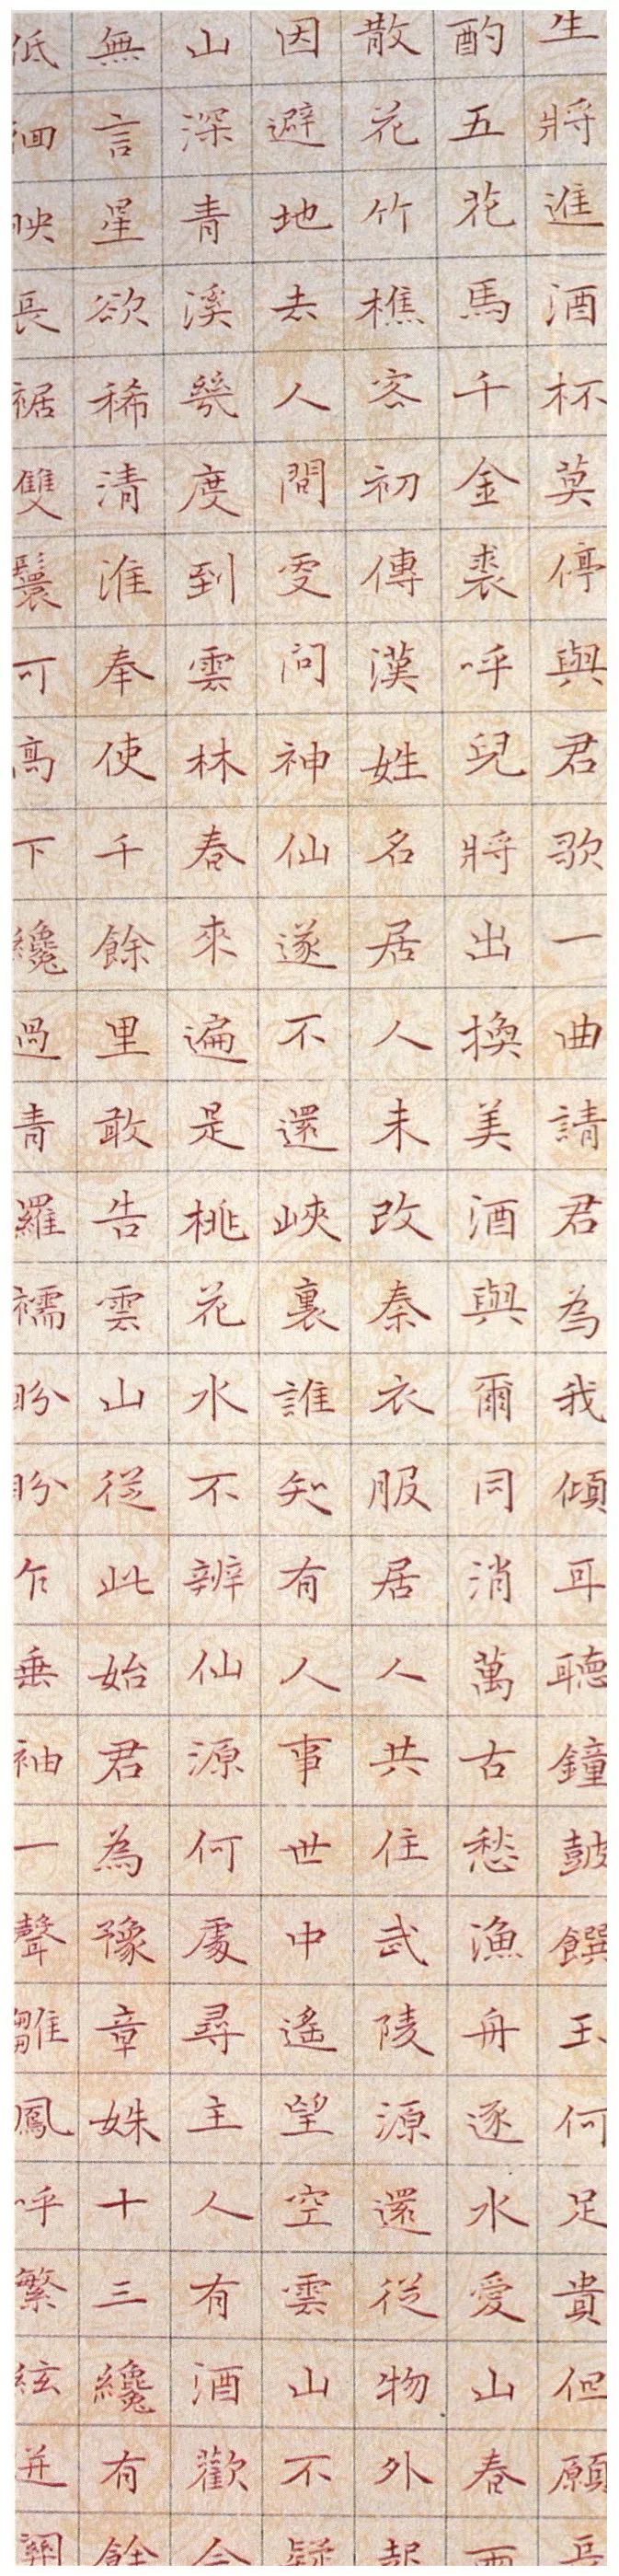 生將進酒杯莫停與君歌一曲請君為我傾耳聽鐘鼓饌玉何足貴但願長
酌五花馬千金裘呼兒將出換美酒與爾同消萬古愁漁舟逐水愛山春兩
散花竹樵客初傳漢姓名居人未改秦衣服居人共住武陵源還從物外起
因避地去人間更問神仙遂不還峽裏誰知有人事世中遙望空雲山不疑
山深青溪幾度到雲林春來遍是桃花水不辨仙源何處尋主人有酒歡今
無言星欲稀清淮奉使千餘里敢告雲山從此始君為豫章姝十三纔有餘
低徊映長裾雙鬟可高下纔過青羅襦盼盼乍垂袖一聲雛鳳呼繁絃迸關